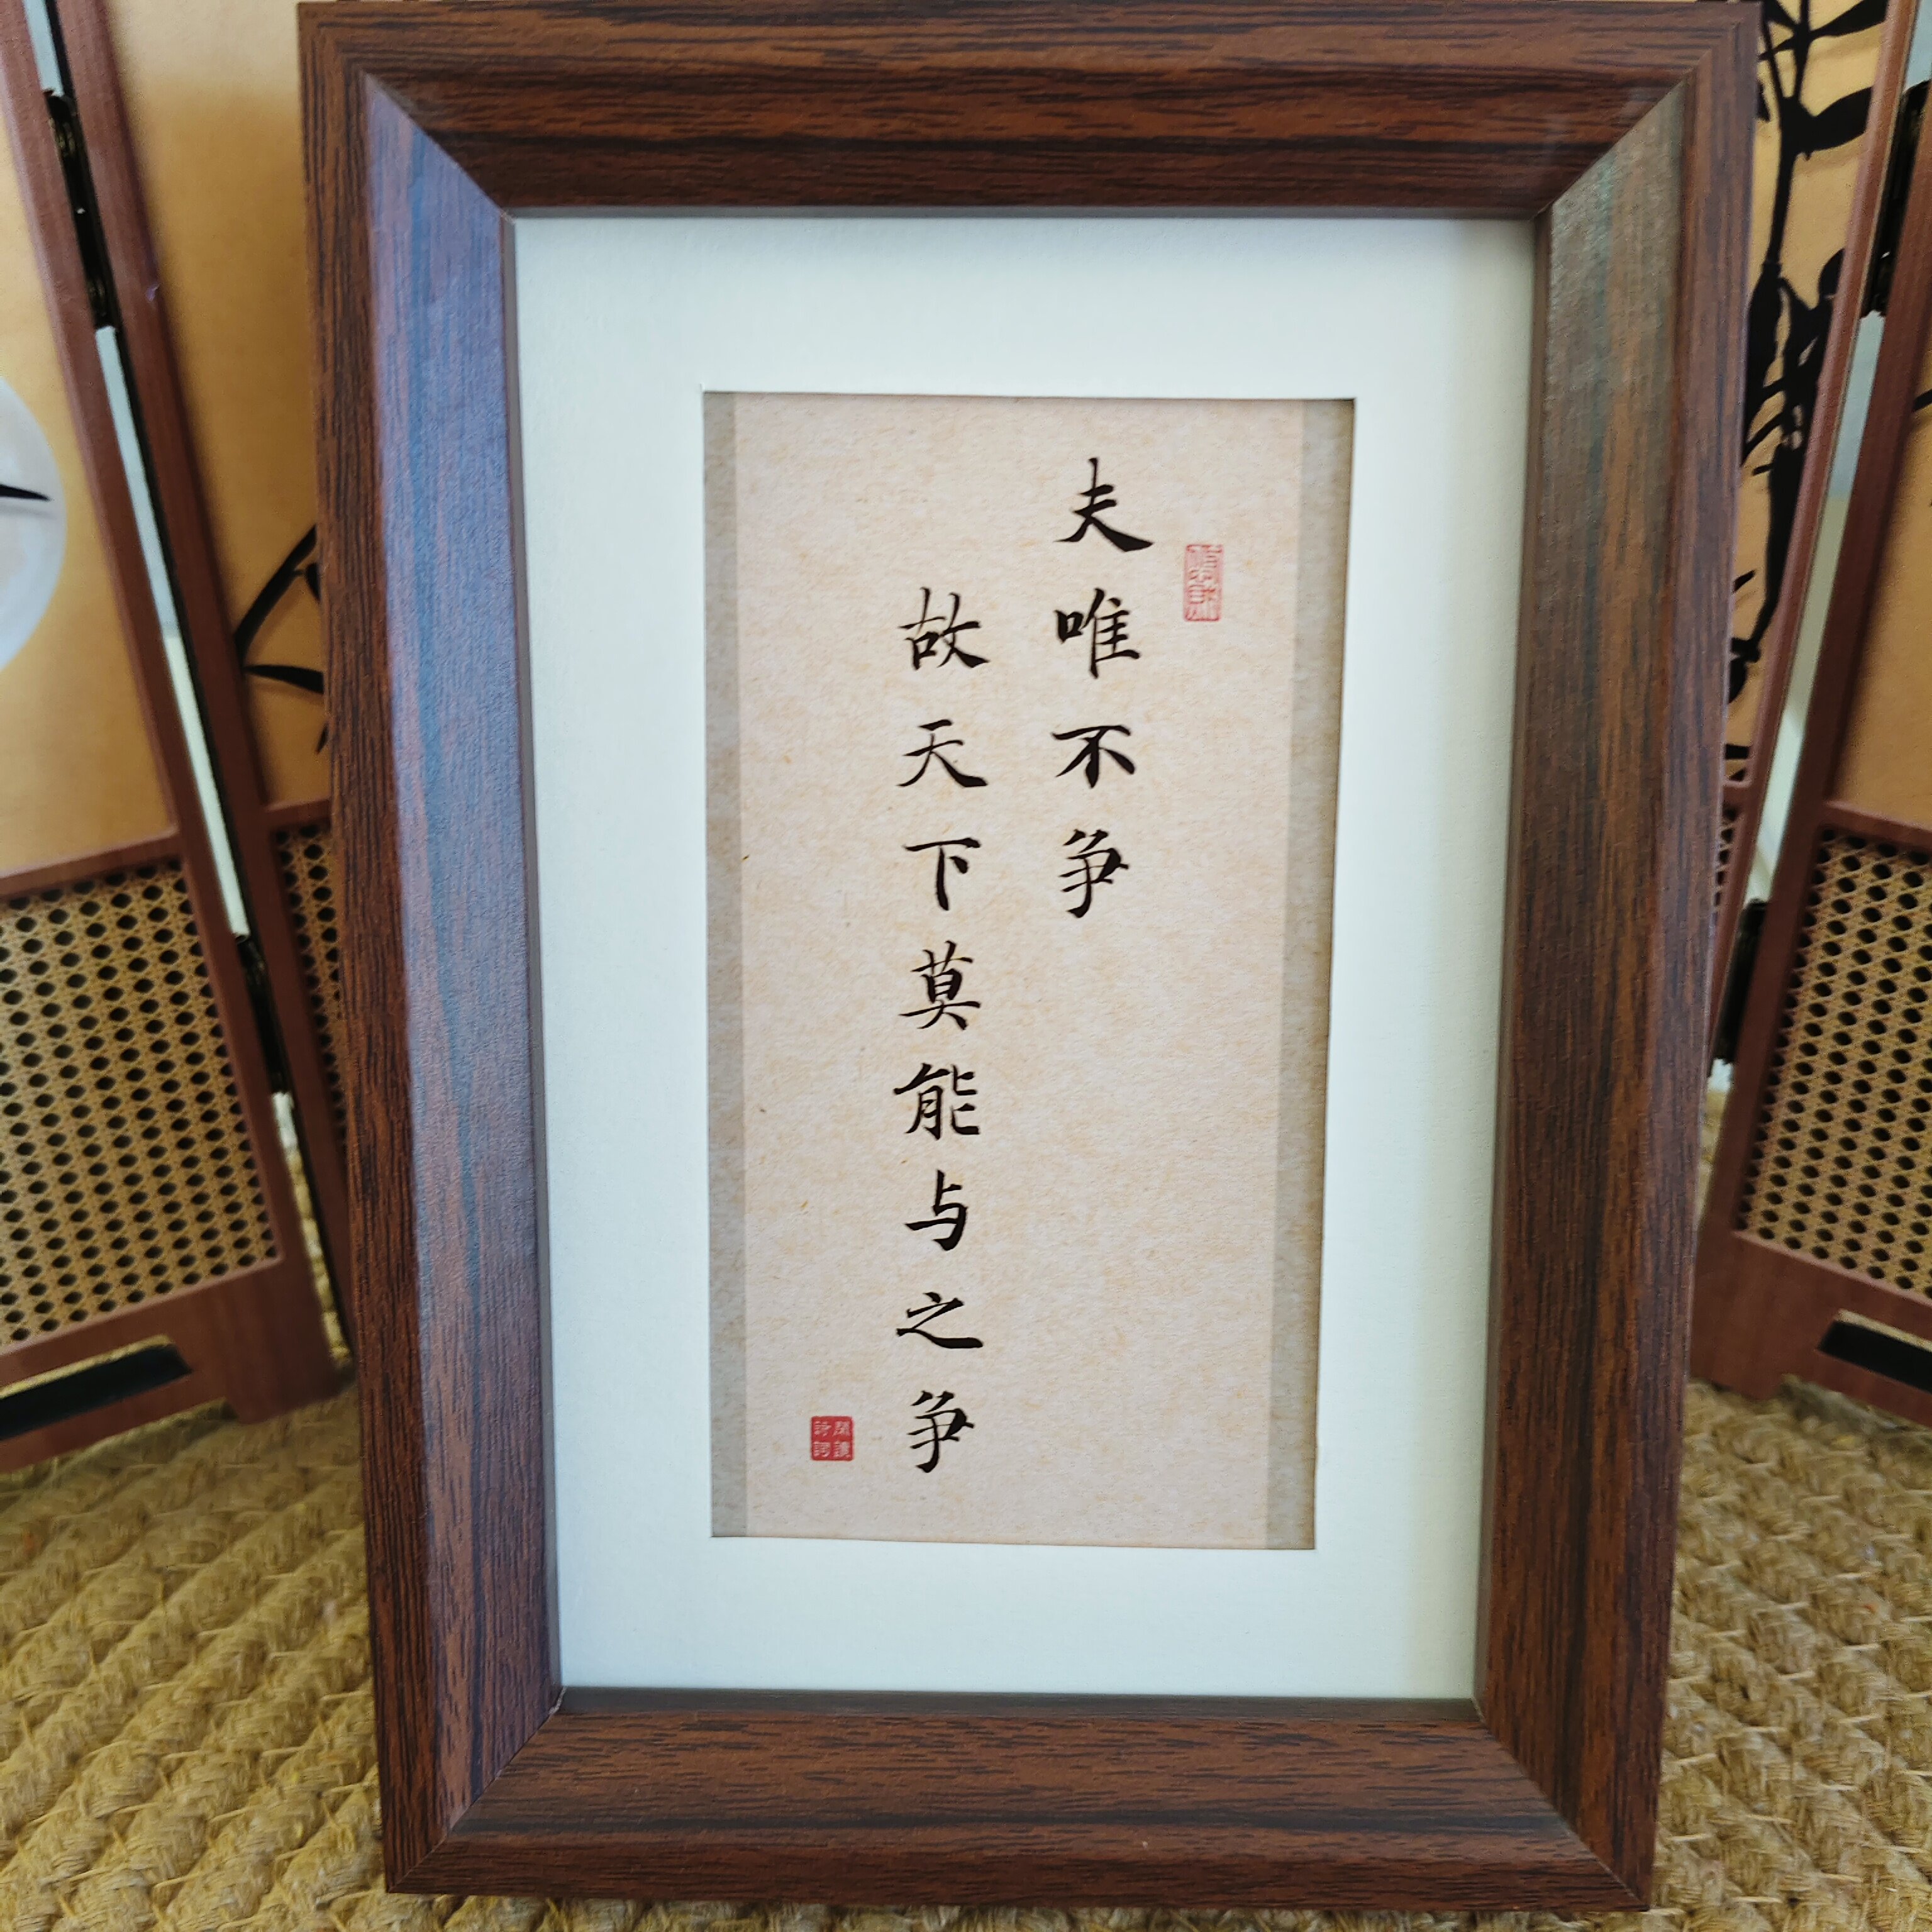 夫唯不争
故天下莫能与之争
閒讀
詩詞